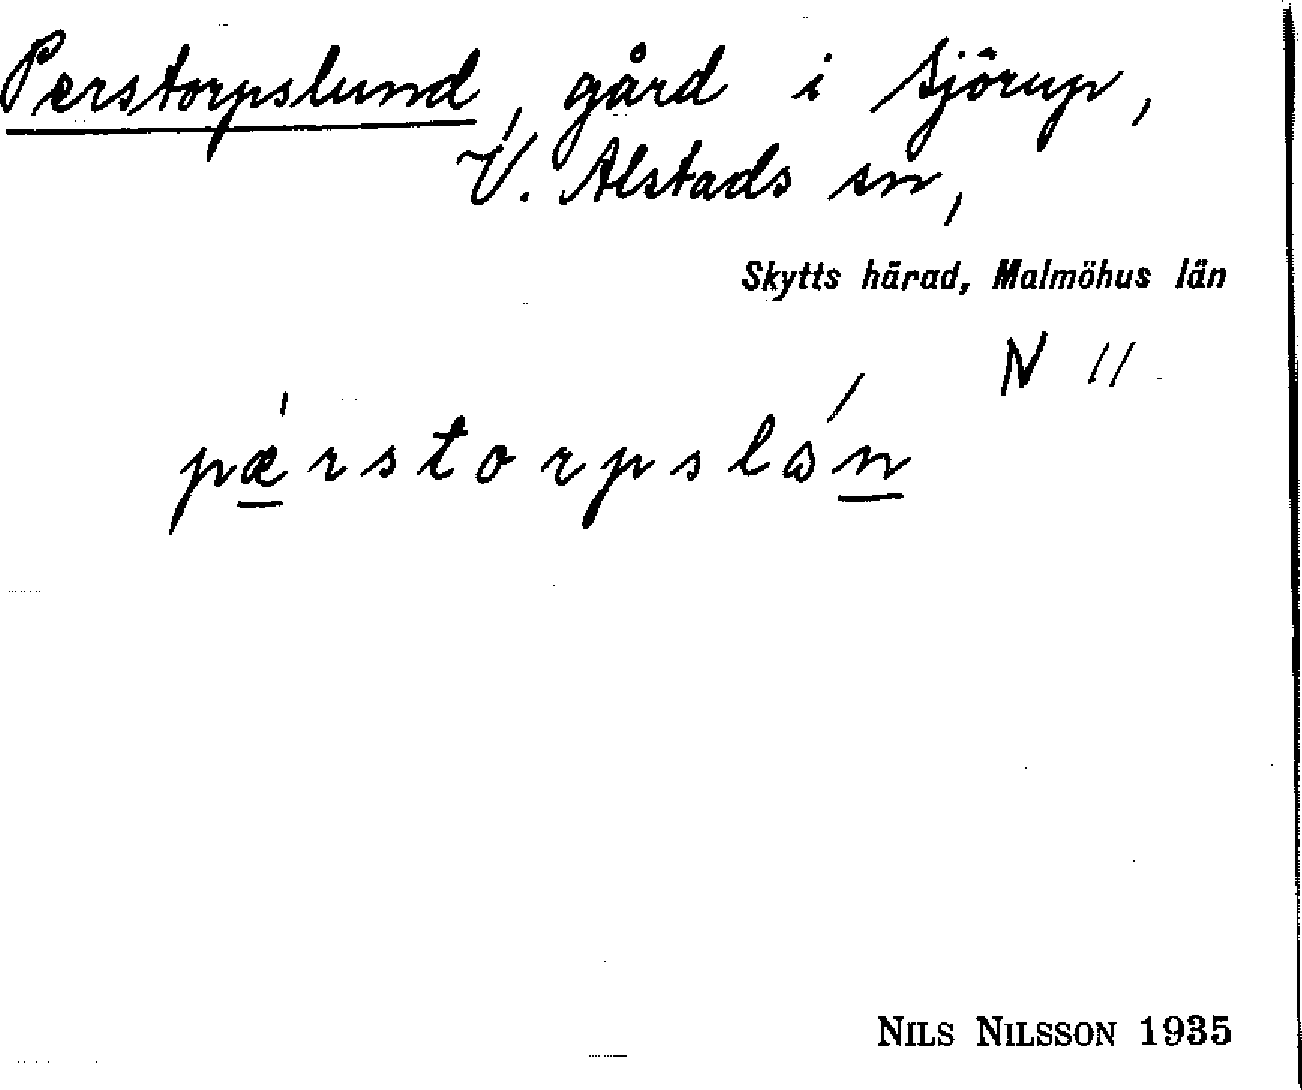 Perstorpslund, gård i Sjörup,
V. Alstads sn,
Skytts härad, Malmöhus län
N 11
pærstorpslån
NILS NILSSON 1935